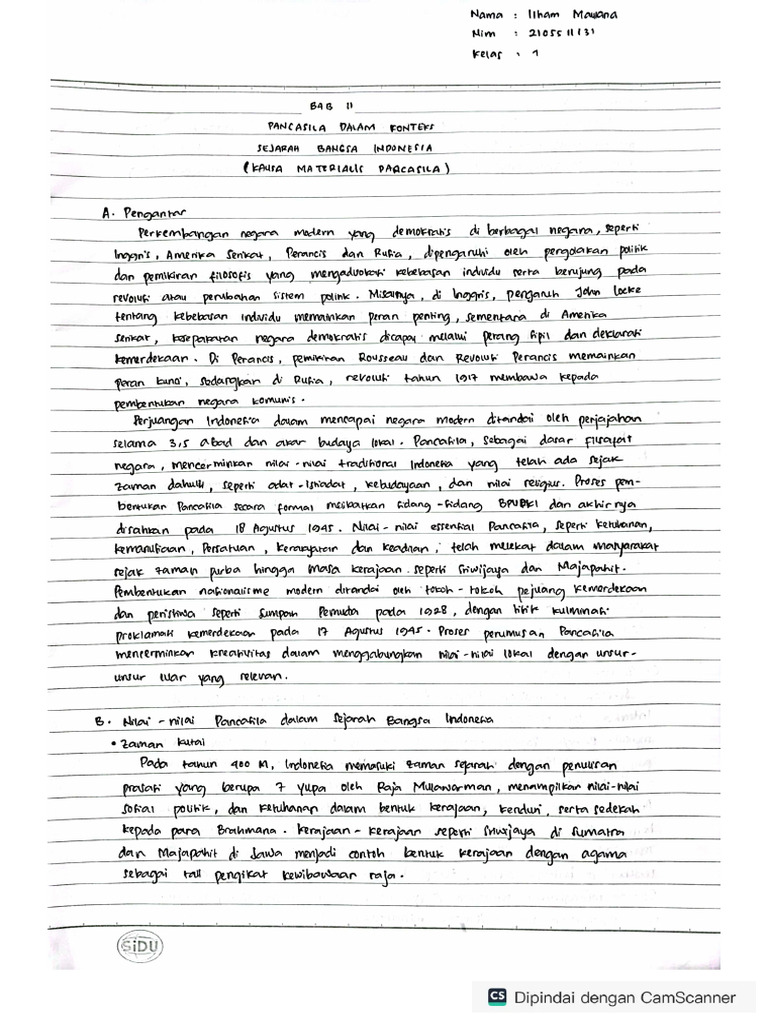 Nama : Ilham Maulana
Nim : 2105511131
Kelas : 1
BAB II
PANCASILA DALAM KONTEKS
SEJARAH BANGSA INDONESIA
(KAUSA MATERIALIS PANCASILA)
A. Pengantar
Perkembangan negara modern yang demokratis di berbagai negara, seperti
Inggris, Amerika Serikat, Perancis dan Rusia, dipengaruhi oleh pergolakan politik
dan pemikiran filosofis yang mengadvokasi kebebasan individu serta berujung pada
revolusi atau perubahan sistem politik. Misalnya, di Inggris, pengaruh John Locke
tentang kebebasan individu memainkan peran penting, sementara di Amerika
Serikat, kesepakatan negara demokratis dicapai melalui perang sipil dan deklarasi
kemerdekaan. Di Perancis, pemikiran Rousseau dan Revolusi Perancis memainkan
peran kunci, sedangkan di Rusia, revolusi tahun 1917 membawa kepada
pembentukan negara komunis.
Perjuangan Indonesia dalam mencapai negara modern ditandai oleh penjajahan
selama 3,5 abad dan akar budaya lokal. Pancasila, sebagai dasar filsafat
negara, mencerminkan nilai-nilai traditional Indonesia yang telah ada sejak
zaman dahulu, seperti adat-istiadat, kebudayaan, dan nilai religius. Proses pem-
bentukan Pancasila secara formal melibatkan sidang-sidang BPUPKI dan akhirnya
disahkan pada 18 Agustus 1945. Nilai-nilai essensial Pancasila, seperti ketuhanan,
kemanusiaan, Persatuan, kerakyatan dan keadilan, telah melekat dalam masyarakat
sejak zaman purba hingga masa kerajaan seperti Sriwijaya dan Majapahit.
Pembentukan nasionalisme modern ditandai oleh tokoh-tokoh pejuang kemerdekaan
dan peristiwa seperti Sumpah Pemuda pada 1928, dengan titik kulminasi
proklamasi kemerdekaan pada 17 Agustus 1945. Proses perumusan Pancasila
mencerminkan kreativitas dalam menggabungkan nilai-nilai lokal dengan unsur-
unsur luar yang relevan.
B. Nilai-nilai Pancasila dalam Sejarah Bangsa Indonesia
• Zaman Kutai
Pada tahun 400 M, Indonesia memasuki zaman sejarah dengan penulisan
prasasti yang berupa 7 yupa oleh Raja Mulawarman, menampilkan nilai-nilai
sosial politik, dan Ketuhanan dalam bentuk kerajaan, kenduri, serta sedekah
kepada para Brahmana. Kerajaan-kerajaan seperti Sriwijaya di Sumatra
dan Majapahit di Jawa menjadi contoh bentuk kerajaan dengan agama
sebagai tali pengikat kewibawaan raja.
SiDU
CS Dipindai dengan CamScanner